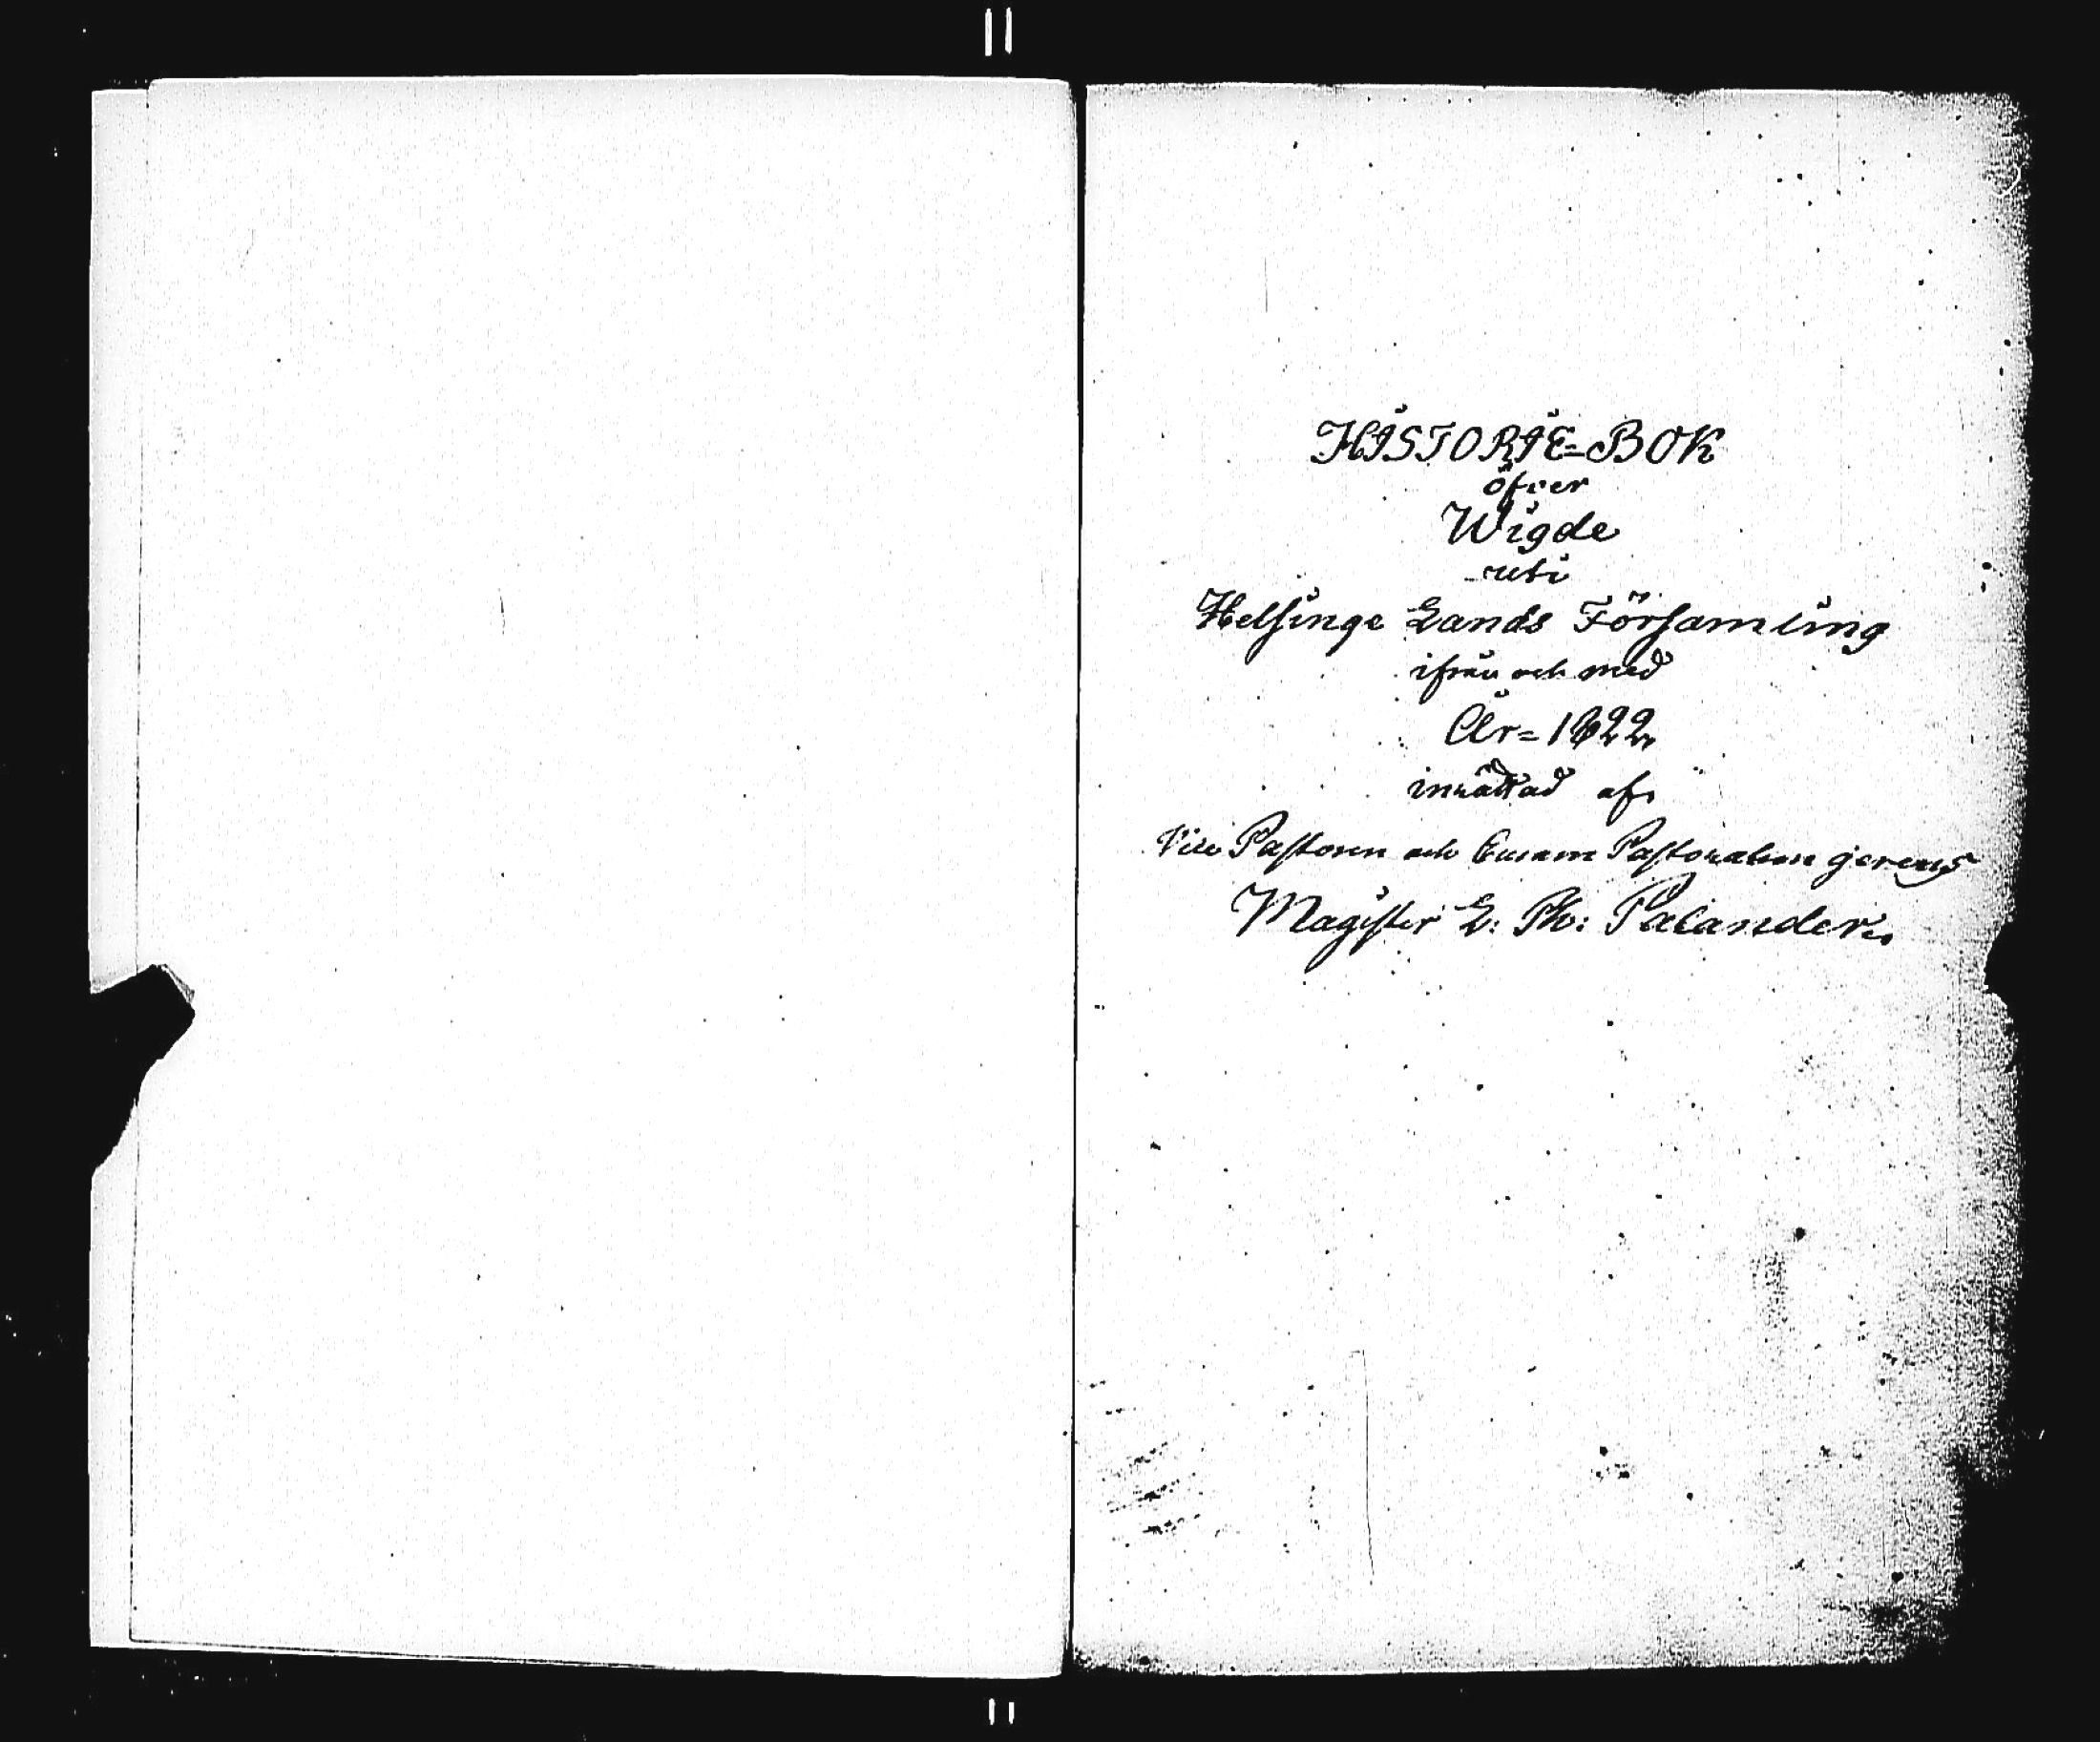 HISTORIE=BOK
öfver
Wigde
uti
Helsinge Lands Församling
ifrån och med
År=1822,
inrättad af
Vice Pastoren och Curam Pastoralem gerens
Magister L: Ph: Palander.